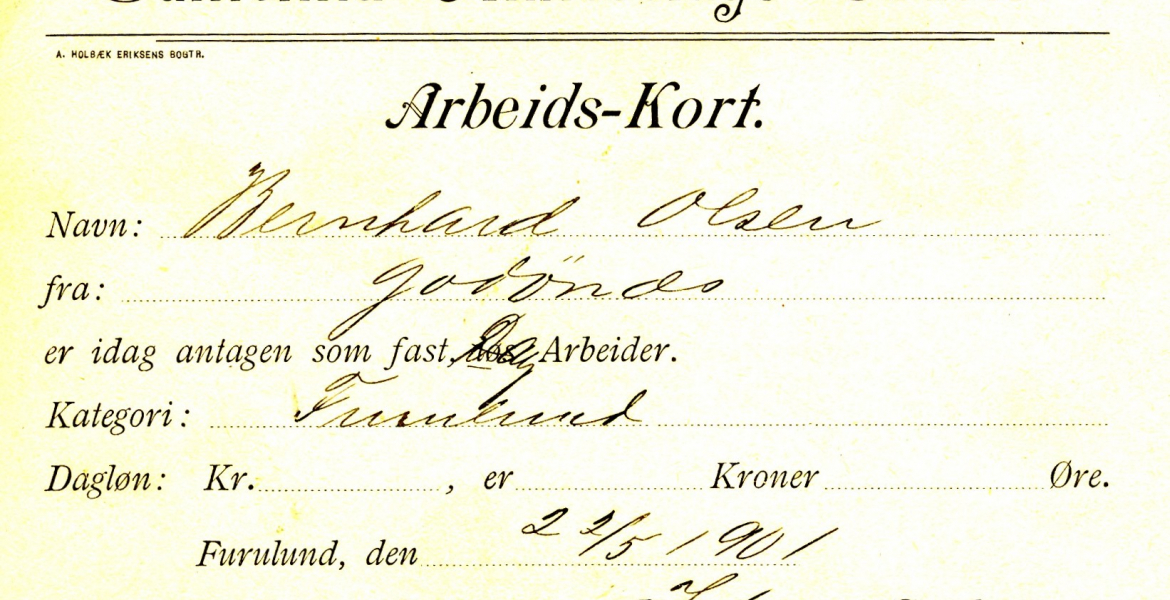 A. HOLBÆK ERIKSENS BOGTR.
Arbeids-Kort.
Navn: Bernhard Olsen
fra: Godönäs
er idag antagen som fast, Dag Arbeider.
Kategori: Furulund
Dagløn: Kr. , er Kroner Øre.
Furulund, den 22/5 1901